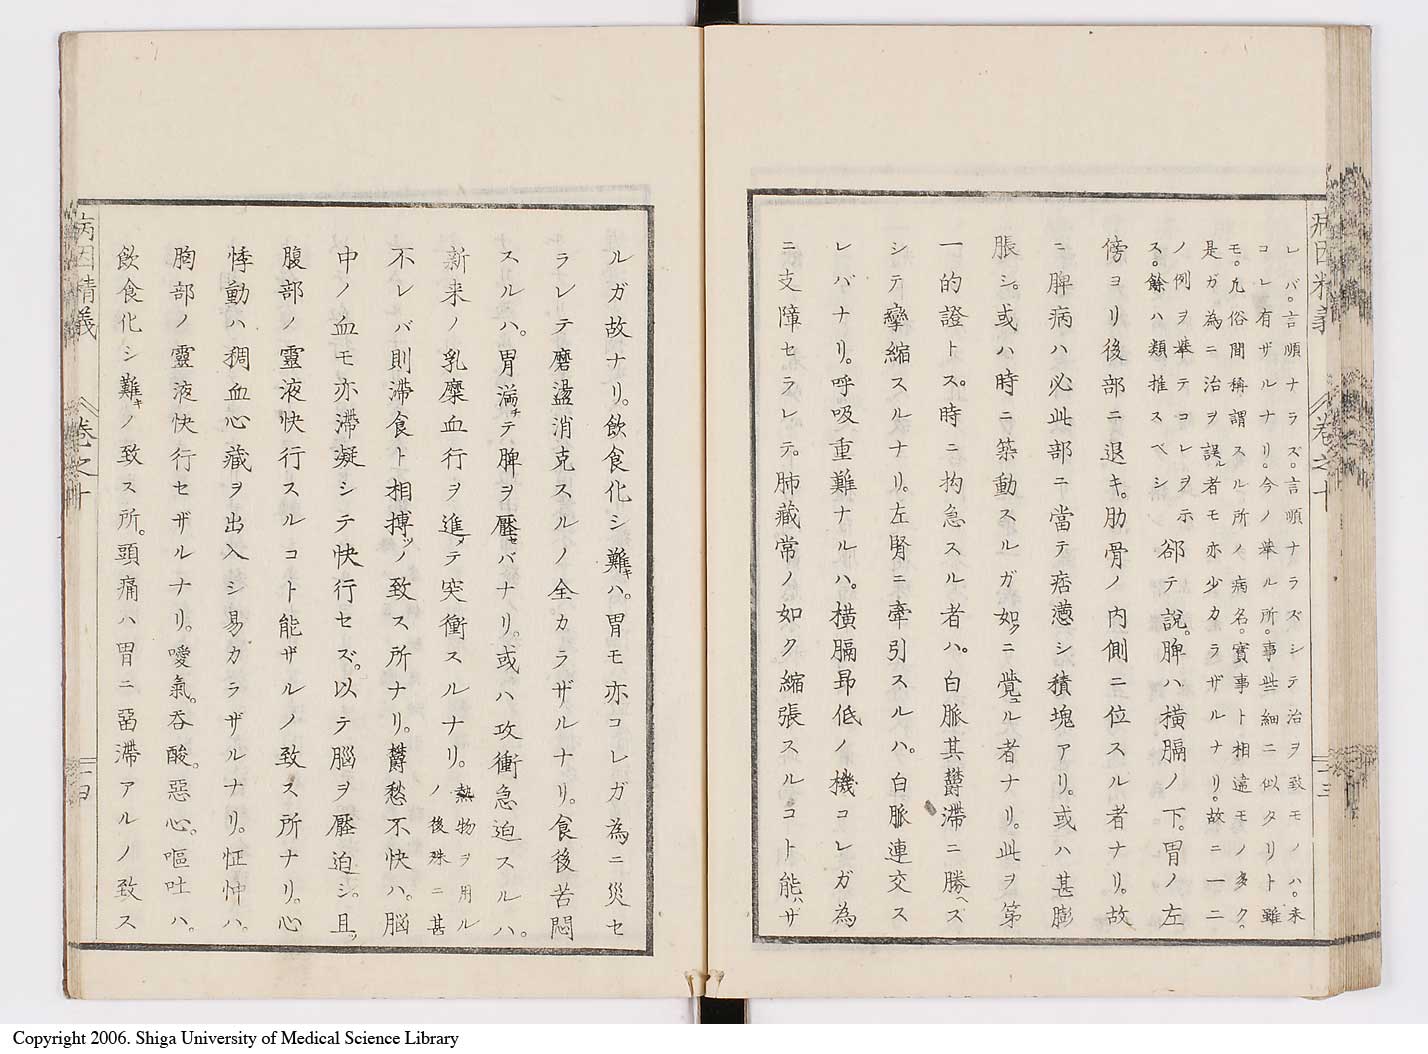 病因精義 卷之十 二十三
レバ。言順ナラズ。言順ナラズシテ治ヲ致モノハ。未
コレ有ザルナリ。今ノ舉ル所。事些細ニ似タリト雖
モ。凢俗間稱謂スル所ノ病名。實事ト相違モノ多ク。
是ガ為ニ治ヲ誤ル者モ亦少カラザルナリ。故ニ一二
ノ例ヲ舉テコレヲ示
ス。餘ハ類推スベシ
郤テ說。脾ハ横膈ノ下。胃ノ左
傍ヨリ後部ニ退キ。肋骨ノ内側ニ位スル者ナリ。故
ニ脾病ハ必此部ニ當テ痞懣シ積塊アリ。或ハ甚膨
脹シ。或ハ時ニ築動スルガ如クニ覺ユル者ナリ。此ヲ第
一的證トス。時ニ拘急スル者ハ。白脈其欝滞ニ勝ヘズ
シテ攣縮スルナリ。左腎ニ牽引スルハ。白脈連交ス
レバナリ。呼吸重難ナルハ。横膈昻低ノ機コレガ為
ニ支障セラレテ。肺藏常ノ如ク縮張スルコト能ハザ
ルガ故ナリ。飲食化シ難キハ。胃モ亦コレガ為ニ災セ
ラレテ磨盪消克スルノ全。カラザルナリ。食後苦悶
スルハ。胃満チテ脾ヲ壓セバナリ。或ハ攻衝急迫スルハ。
新来ノ乳糜血行ヲ進メテ突衝スルナリ。
熱物ヲ用ル
ノ後殊ニ甚
不レバ則滞食ト相搏ツノ致ス所ナリ。欝愁不快ハ。腦
中ノ血モ亦滯凝シテ快行セズ。以テ腦ヲ壓迫シ。且ツ
腹部ノ靈液快行スルコト能ザルノ致ス所ナリ。心
悸動ハ稠血心藏ヲ出入シ易カラザルナリ。怔忡ハ。
胸部ノ靈液快行セザルナリ。噯氣。吞酸。惡心。嘔吐ハ。
飲食化シ難キノ致ス所。頭痛ハ胃ニ畱滯アルノ致ス
病因精義 卷之十 二十四
Copyright 2006. Shiga University of Medical Science Library